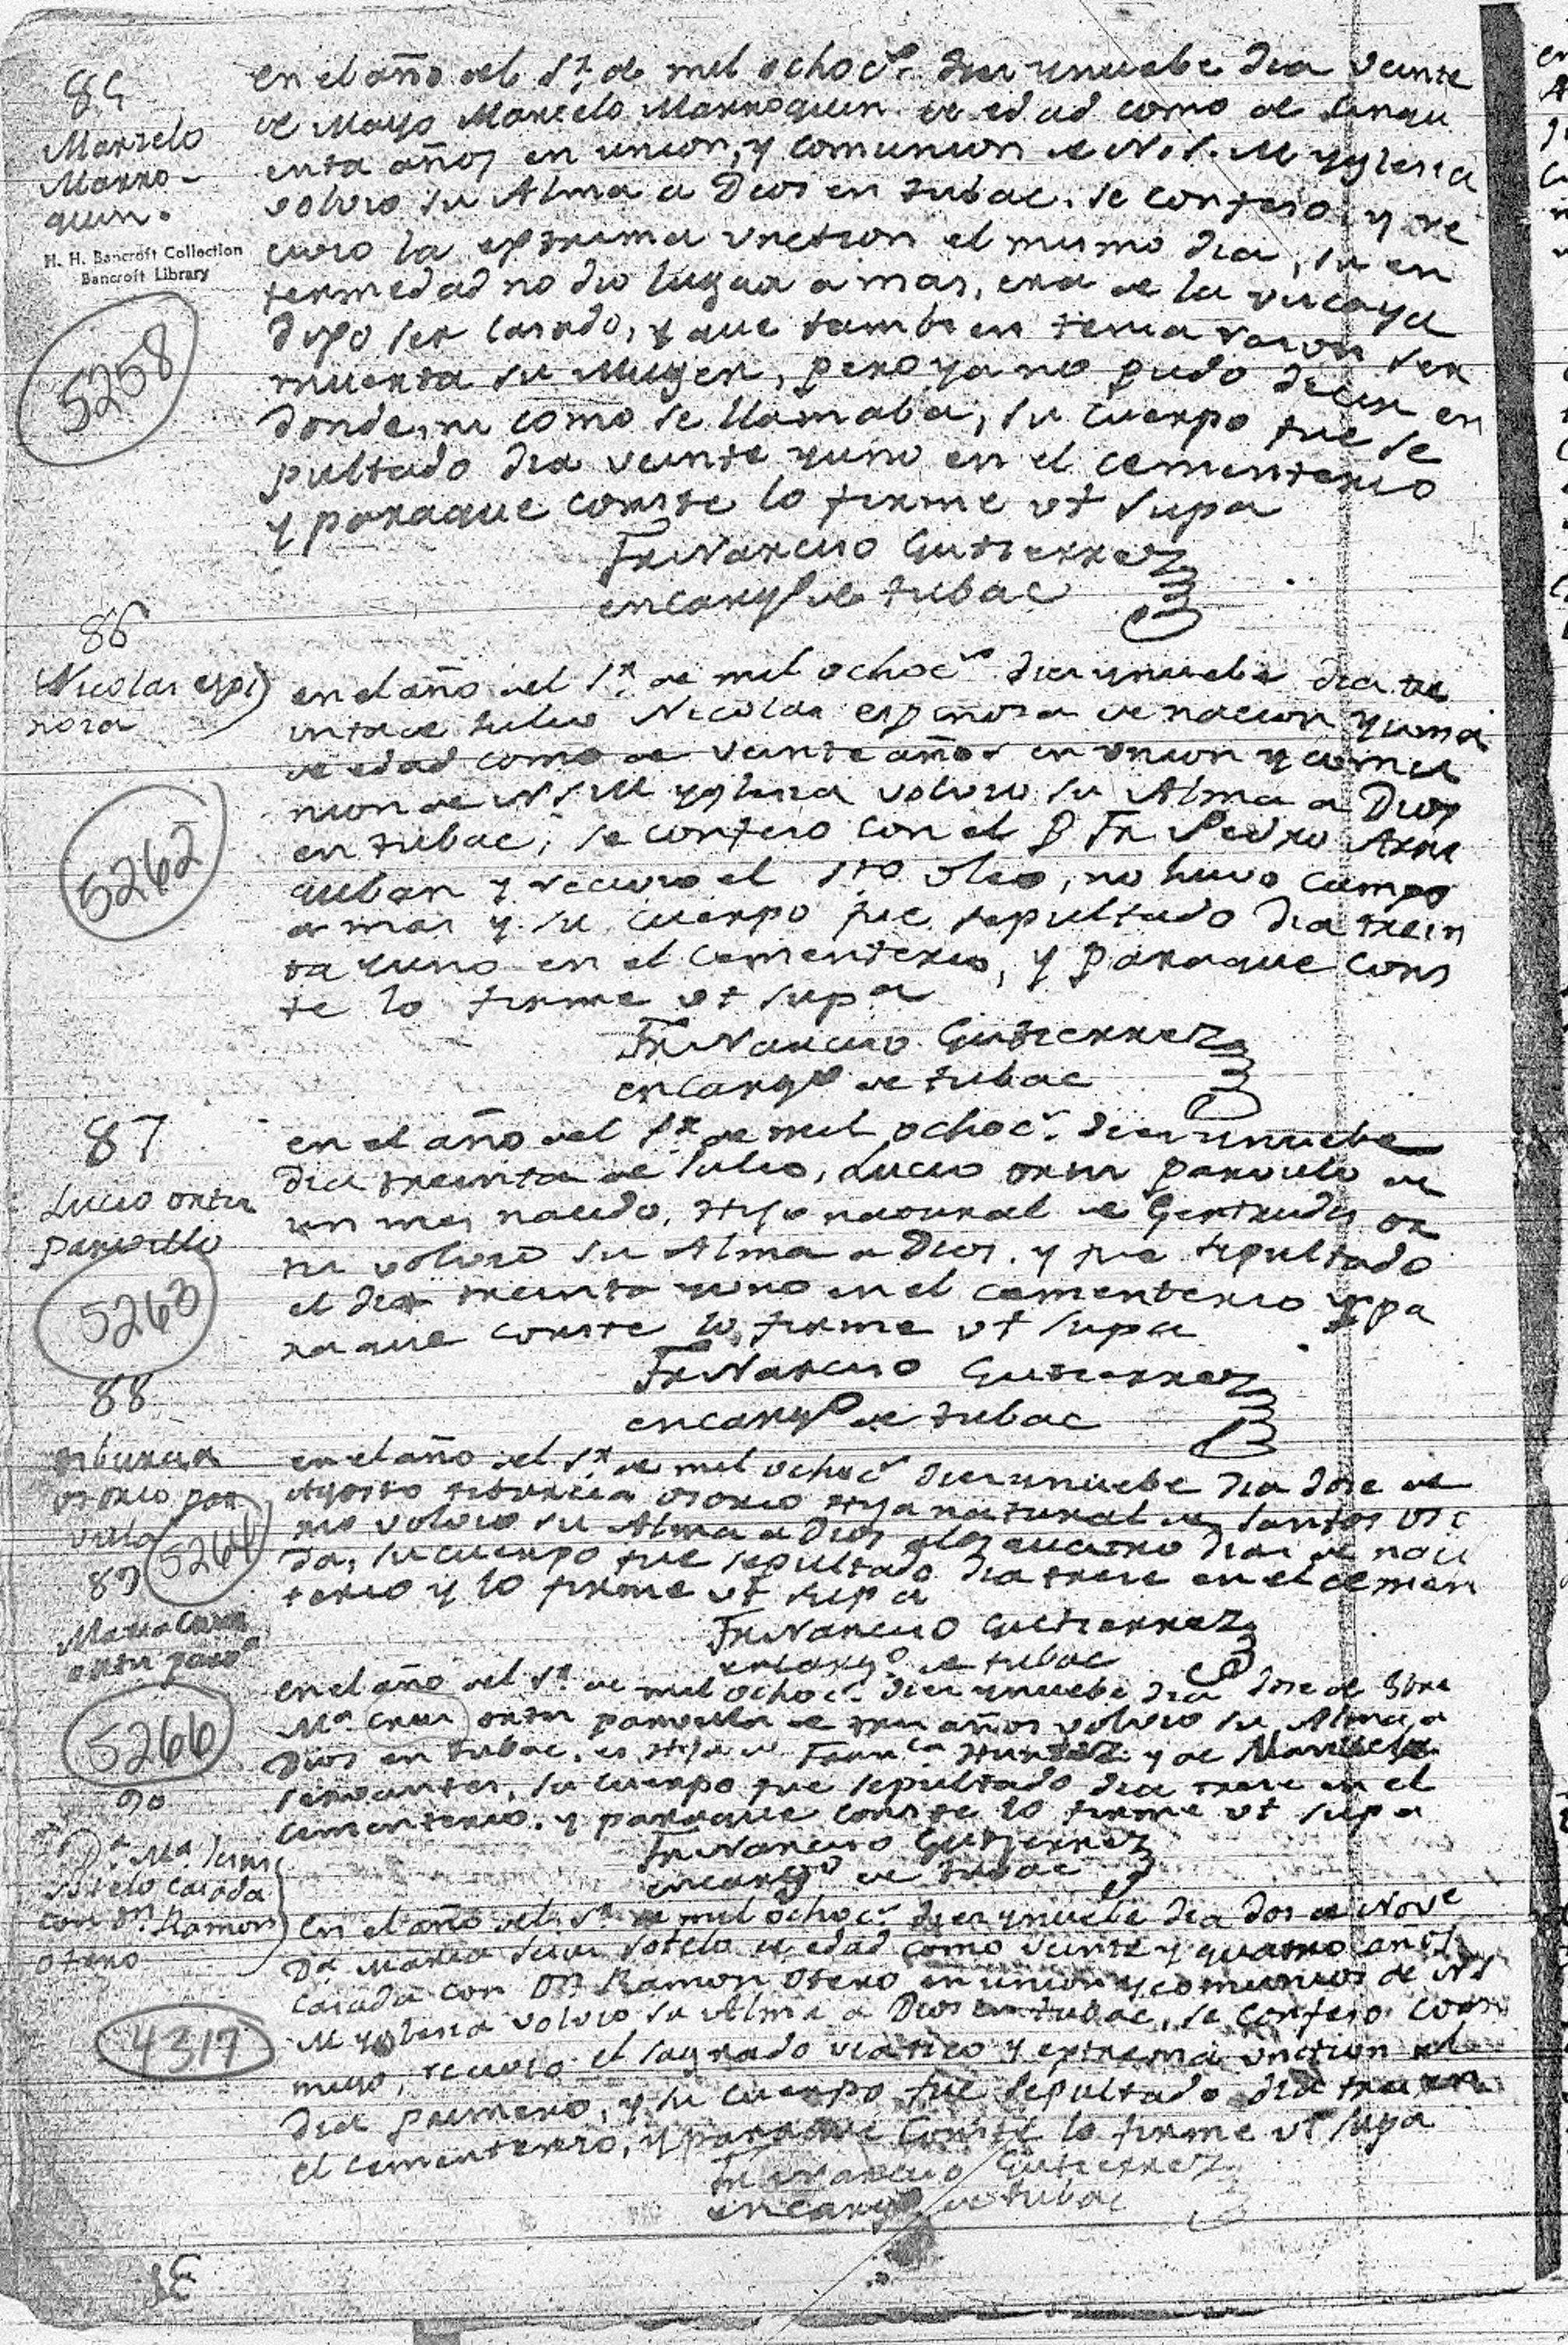 85
Marzelo
Marro-
quin.
H. H. Bancroft Collection
Bancroft Library
5258
en el año del Sr. de mil ochoc.s diez y nuebe dia veinte
de Mayo Marcelo Marroquin de edad como de sinqu
enta años en union, y comunion de N. S. M. yglesia
volvio su Alma a Dios en tubac. se confeso, y re
civio la eptrema unction el mismo dia, su en
fermedad no dio lugar a mas, era de la viscaya
dijo ser casado, y que tambien tenia razon ser
muerta su Muger, pero ya no pudo decir en
donde, ni como se llamaba, su cuerpo fue se
pultado dia veinte y uno en el cementerio
y paraque conste lo firme ut supa
Fr Narciso Gutierrez
encargdo de tubac
86
Nicolas espi
nosa
5262
en el año del Sr. de mil ochoc.s diez y nuebe dia tre
inta de Julio Nicolas espinosa de nacion yuma
de edad como de veinte años en union y comu
nion de N S M yglesia volvio su Alma a Dios
en tubac, se confeso con el P Fr Pedro Arri
quibar y recivio el sto oleo, no huvo campo
a mas y su cuerpo fue sepultado dia trein
ta y uno en el cementerio, y paraque cons
te lo firme ut supa
Fr Narciso Gutierrez
encargdo de tubac
87
Lucio ortis
parvulo
5263
en el año del Sr. de mil ochoc.s diez y nuebe
dia treinta de Julio, Lucio ortis parvulo de
un mes nacido, Hijo natural de Gertrudis or
tis volvio su Alma a Dios. y fue sepultado
el dia treinta y uno en el cementerio y pa
raque conste lo firme ut supa
Fr Narciso Gutierrez
encargdo de tubac
88
tiburcia
osorio par
vula
5264
en el año del Sr. de mil ochoc.s diez y nuebe dia doze de
Agosto tiburcia osorio Hija natural de Santos oso
rio volvio su Alma a Dios a los quatro dias de naci
da, su cuerpo fue sepultado dia trese en el cemen
terio y lo firme ut supa
Fr Narciso Gutierrez
encargo de tubac
89
Maria Cruz
ortis parva
5266
en el año del Sr. de mil ochoc.s diez y nuebe dia doze de
Ma Cruz ortis parvula de tres años volvio su Alma a
Dios en tubac. es Hija de Franca y de
servantes, su cuerpo fue sepultado dia trese en el
cementerio. y paraque conste lo firme ut supa
Fr Narciso Gutierrez
encargdo de tubac
90
Da. Ma. Jesus
sotelo casada
con Dn. Ramon
otero
4317
En el año del Sr. de mil ochoc.s diez y nuebe dia dos de Nove
Da Maria Jesus Sotelo de edad como veinte y quatro años
casada con Dn Ramon Otero en union y comunion de N S
M yglesia volvio su Alma a Dios en tubac, se confeso con
migo, recivio el sagrado viatico y eptrema unction el
dia primero, y su cuerpo fue sepultado dia tres en
el cementerio, y paraque conste lo firme ut supa
Fr Narciso Gutierrez
encargdo de tubac